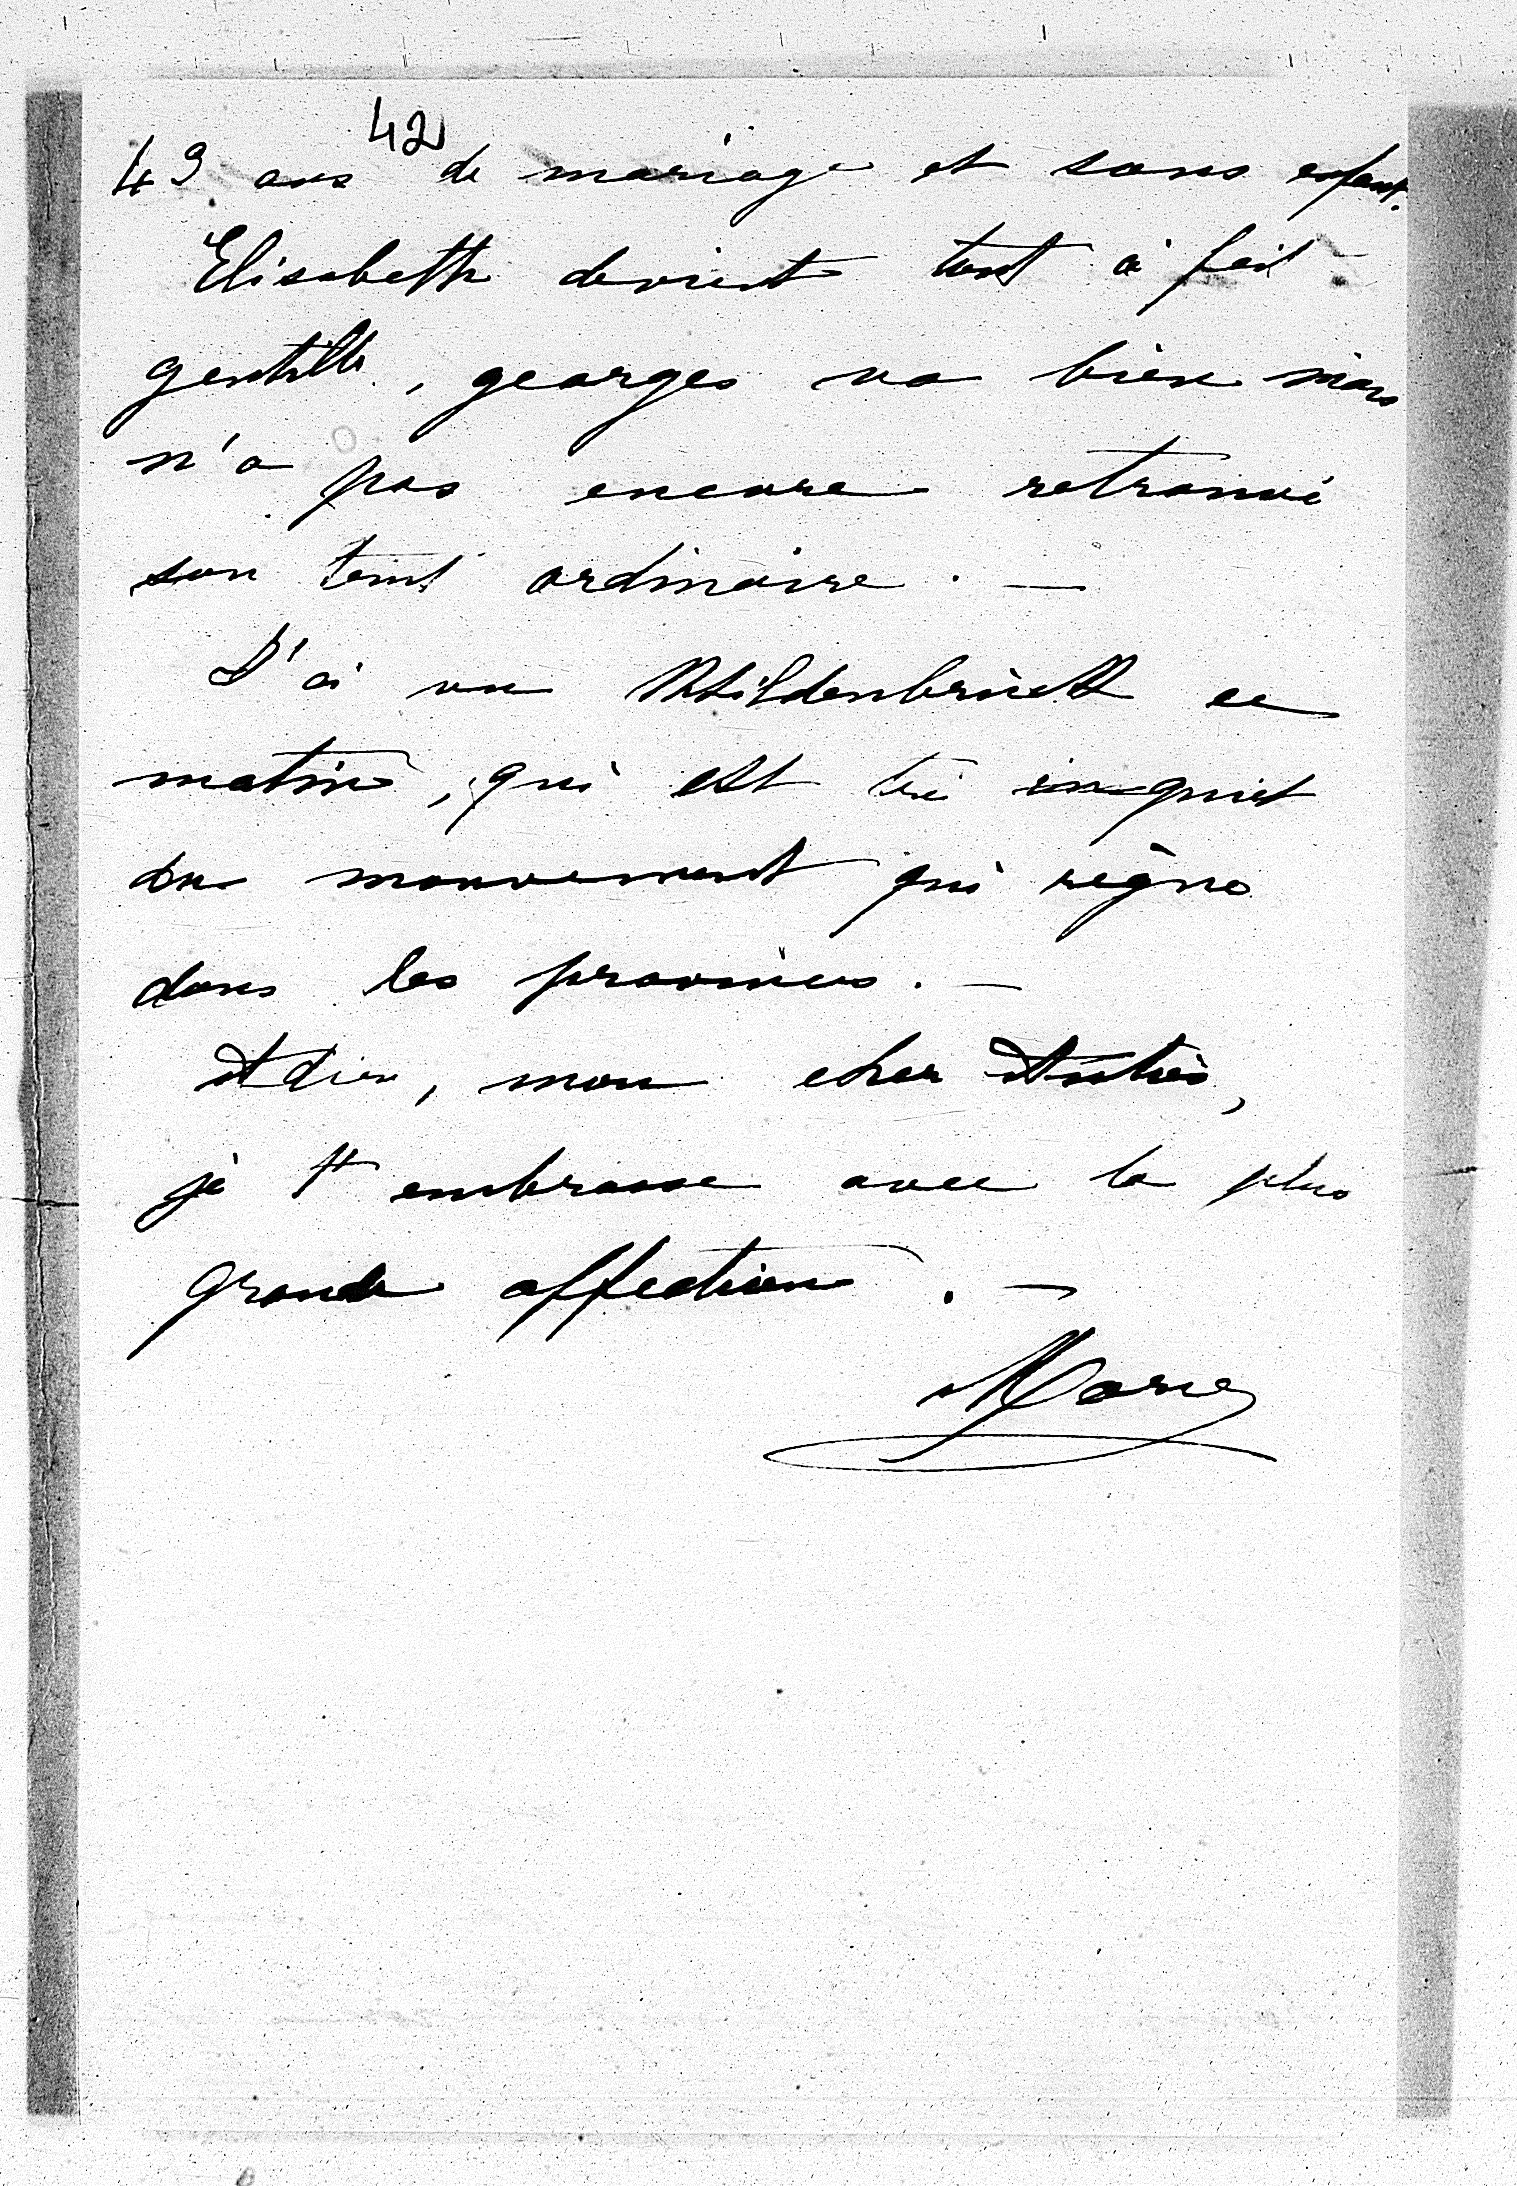 42
43 ans de mariage et sans enfant.
Elisabeth devient tout à fait
gentille, georges va bien mais
n'a pas encore retrouvé
son teint ordinaire. —
J'ai vu ce
matin, qui est très inquiet
du mouvement qui règne
dans les provinces. —
Adieu, mon cher
je t'embrasse avec la plus
grande affection. —
Marie